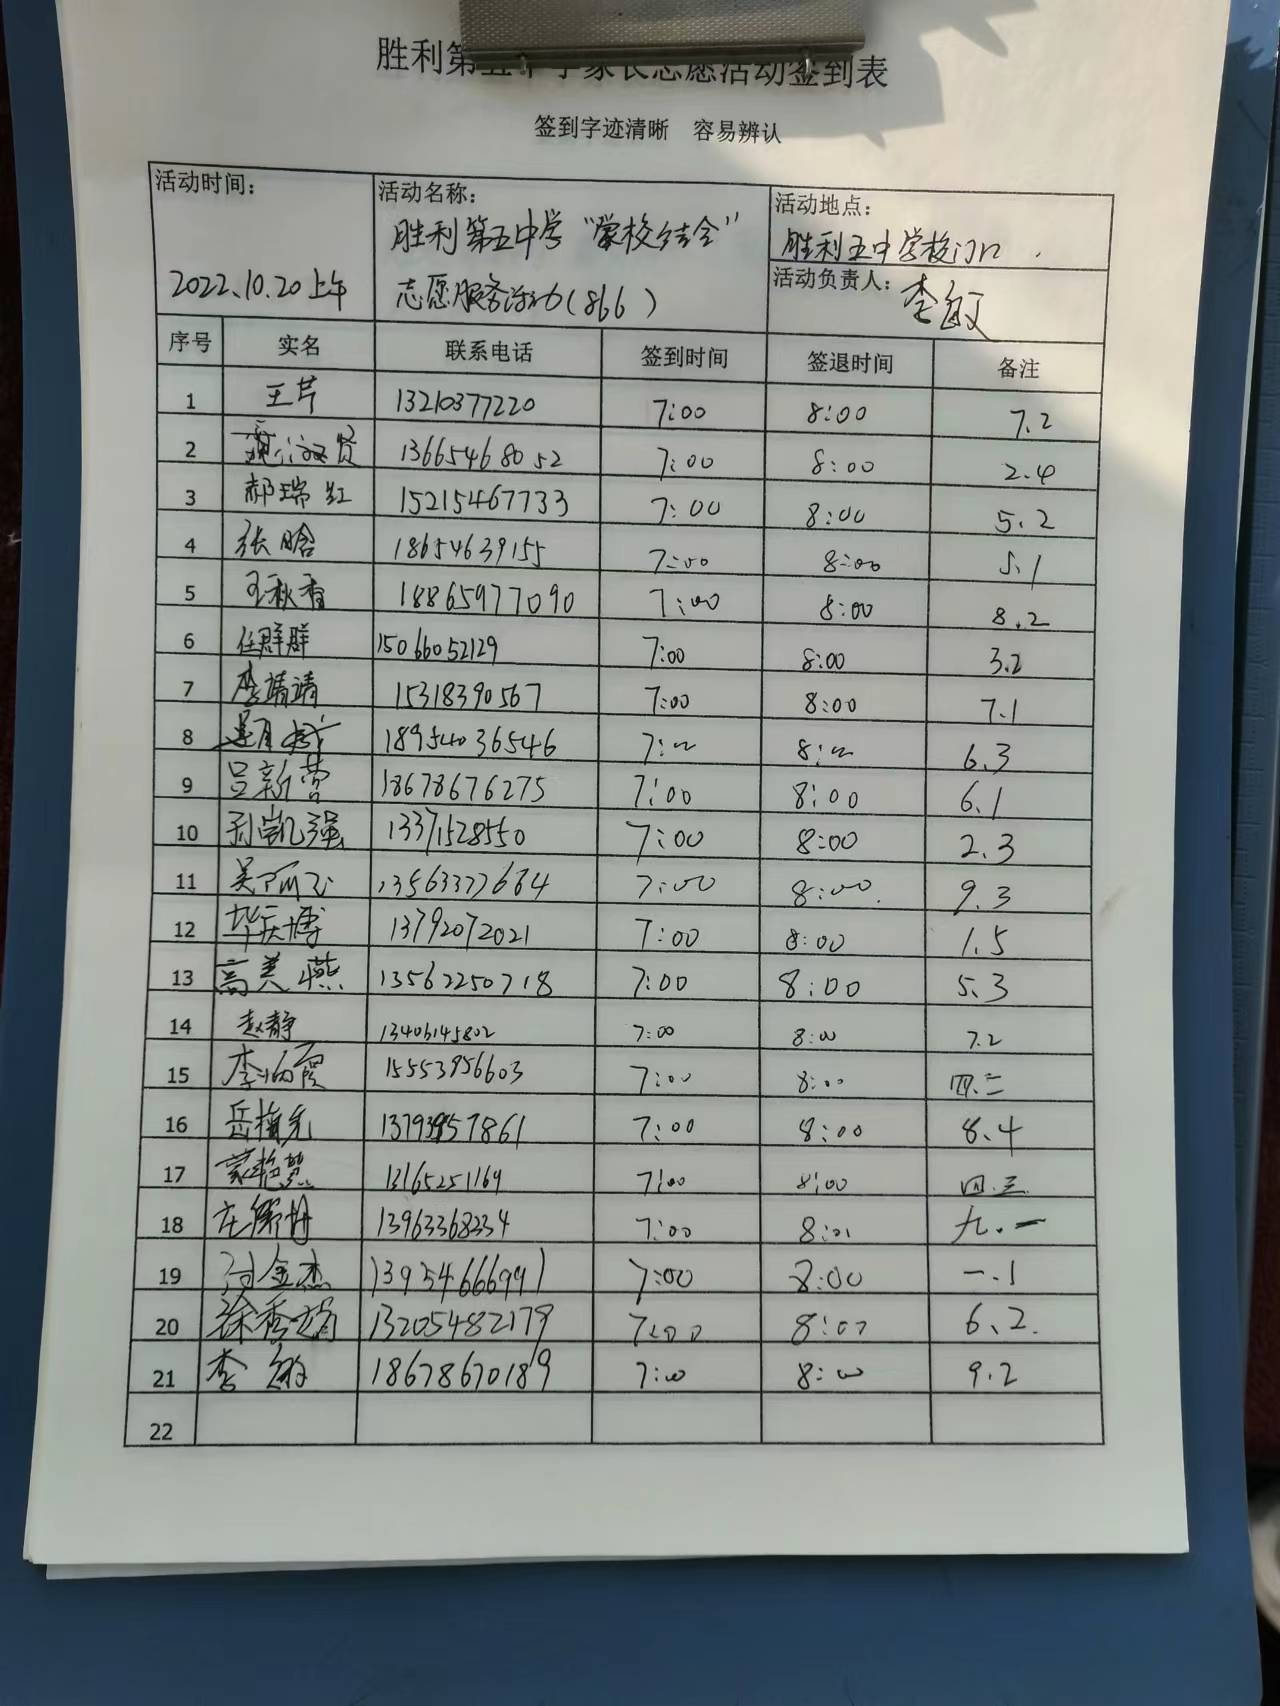 胜利第五中学家长志愿活动签到表
签到字迹清晰 容易辨认
活动时间:
2022.10.20上午
活动名称:
胜利第五中学“家校结合”
志愿服务活动(866)
活动地点:
胜利五中学校门口.
活动负责人: 李敏
序号 实名 联系电话 签到时间 签退时间 备注
1 王芹 13210377220 7:00 8:00 7.2
2 魏淑贤 13665468052 7:00 8:00 2.4
3 郝瑞红 15215467733 7:00 8:00 5.2
4 张晗 18654639155 7:00 8:00 5.1
5 王秋香 18865977090 7:00 8:00 8.2
6 任群群 15066052129 7:00 8:00 3.2
7 李靖靖 15318390567 7:00 8:00 7.1
8 18954036546 7:00 8:00 6.3
9 吕新营 18678676275 7:00 8:00 6.1
10 孙凯强 13371528550 7:00 8:00 2.3
11 吴丽 13563377684 7:00 8:00 9.3
12 毕庆博 13792072021 7:00 8:00 1.5
13 高美燕 13562250718 7:00 8:00 5.3
14 赵静 13406145802 7:00 8:00 7.2
15 李海霞 15553956603 7:00 8:00 四.二
16 岳梅 7:00 8:00 8.4
17 13165251169 7:00 8:00 四.三
18 13963368334 7:00 8:01 九.一
19 金杰 13954666991 7:00 8:00 一.1
20 徐秀娟 13205482179 7:00 8:00 6、2.
21 李敏 18678670189 7:00 8:00 9.2
22